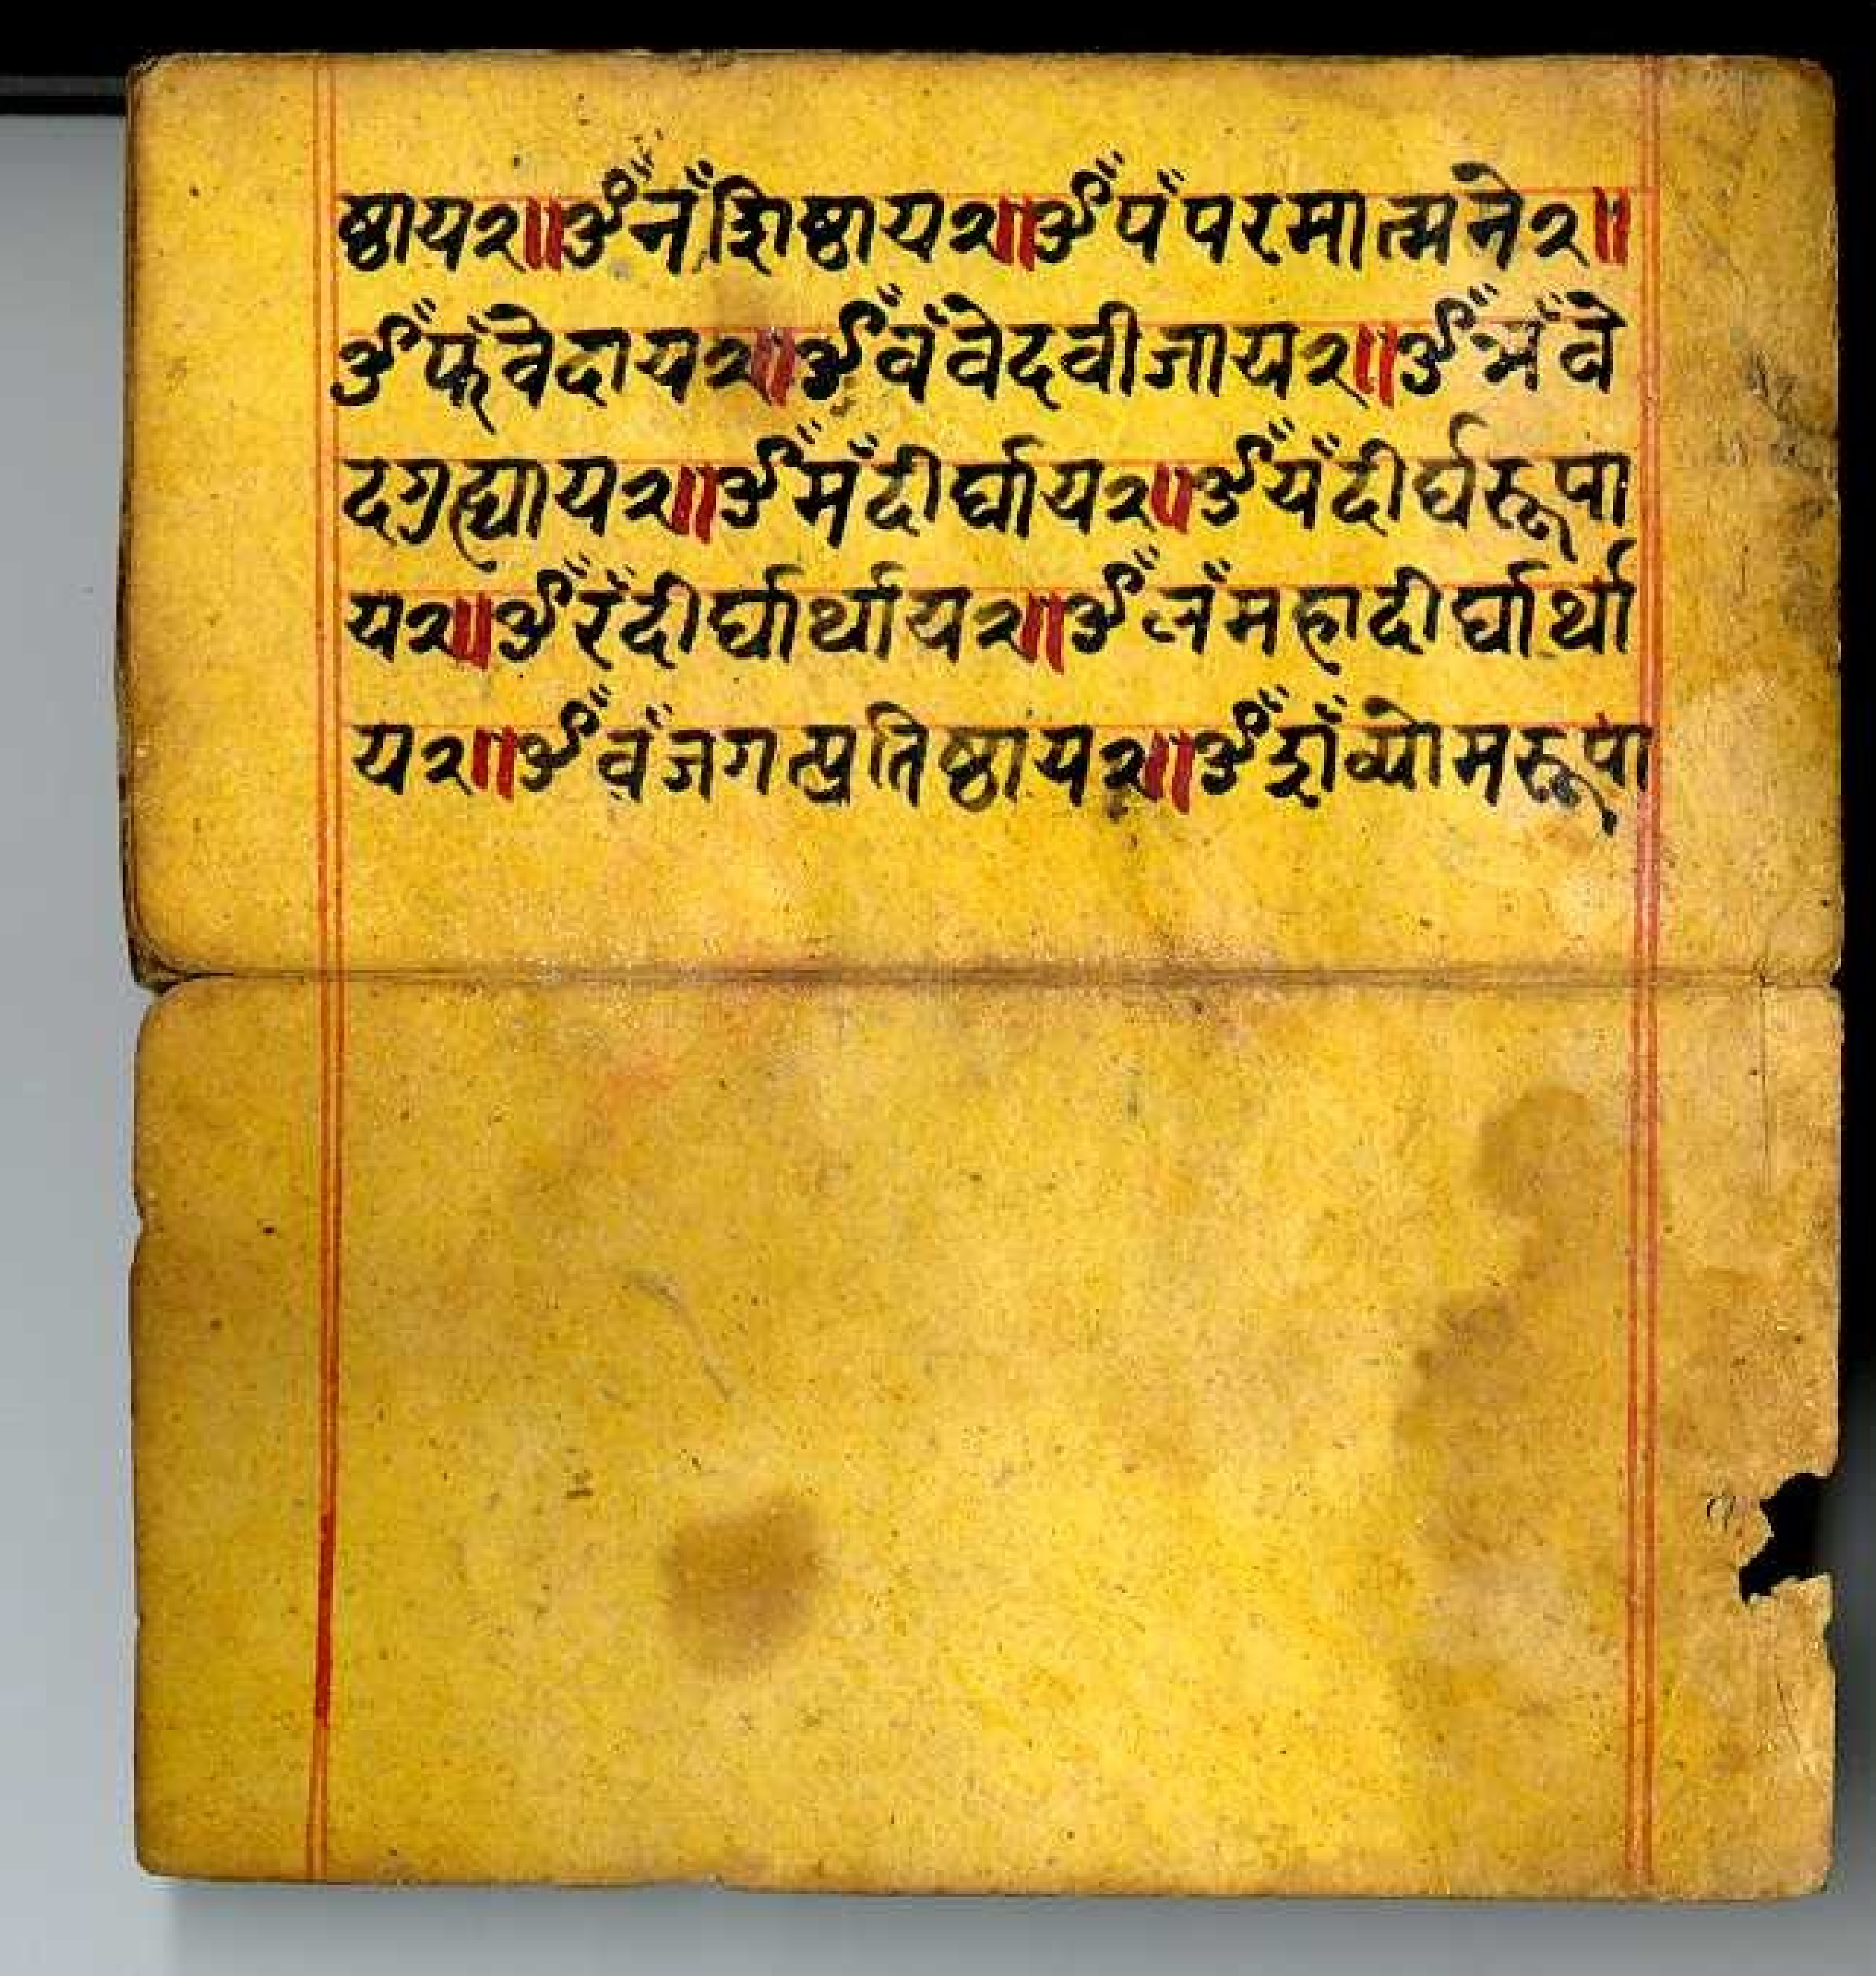 ष्ठायर॥ॐनँज्ञिष्ठायर॥ॐपँपरमात्मनेर॥
ॐफँवेदायर॥ॐवँवेदवीजायर॥ॐभँवे
दगुह्यायर॥ॐमँदीर्घायर॥ॐयँदीर्घरूपा
यर॥ॐरँदीर्घार्थायर॥ॐलँमहादीर्घार्था
यर॥ॐवँजगत्प्रतिष्ठायर॥ॐशँव्योमरूपा